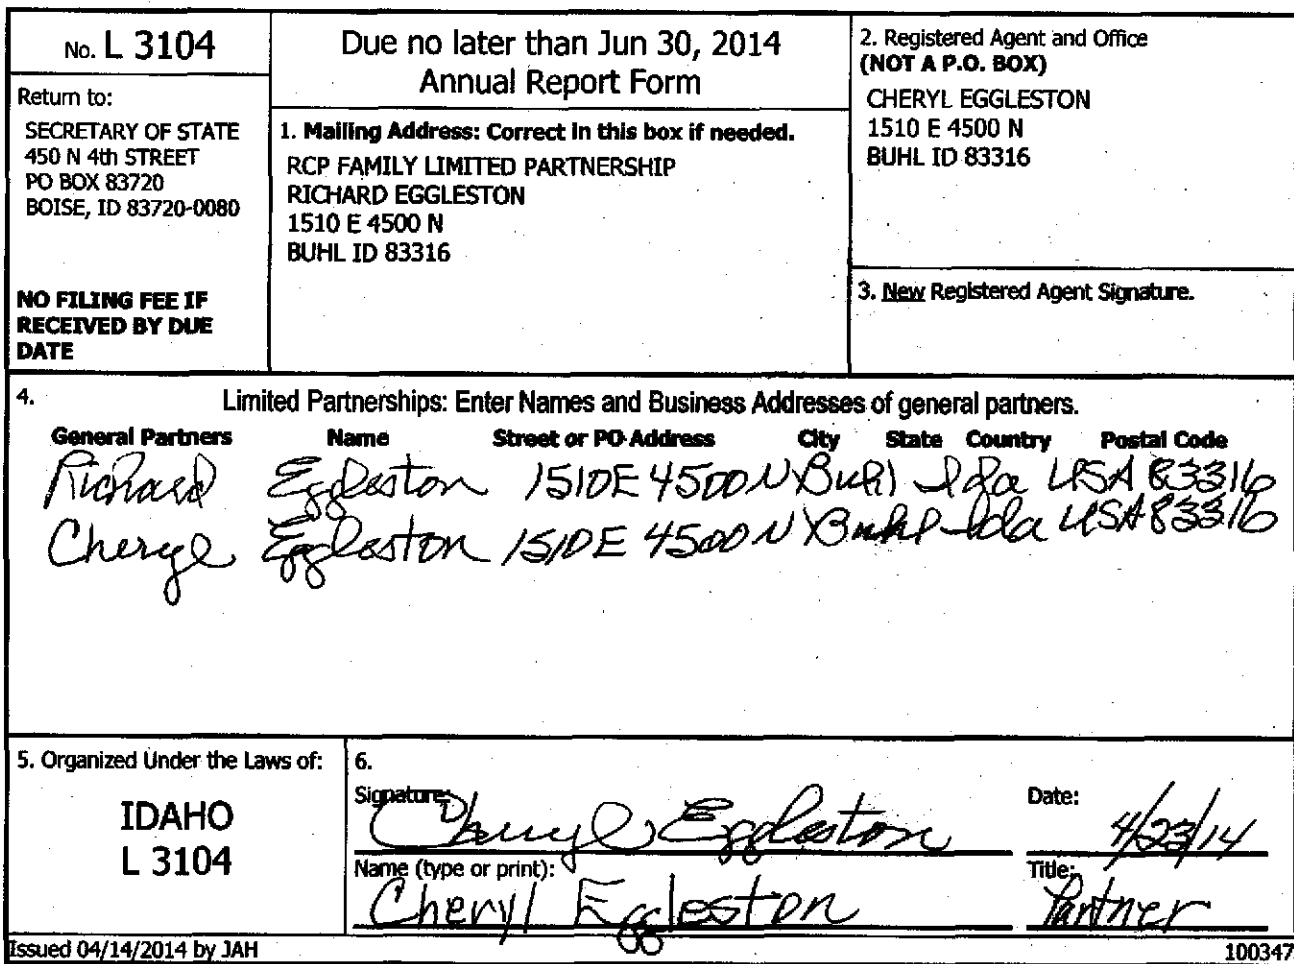 No. L 3104
Return to:
SECRETARY OF STATE
450 N 4th STREET
PO BOX 83720
BOISE, ID 83720-0080
NO FILING FEE IF
RECEIVED BY DUE
DATE
Due no later than Jun 30, 2014
Annual Report Form
1. Mailing Address: Correct in this box if needed.
RCP FAMILY LIMITED PARTNERSHIP
RICHARD EGGLESTON
1510 E 4500 N
BUHL ID 83316
2. Registered Agent and Office
(NOT A P.O. BOX)
CHERYL EGGLESTON
1510 E 4500 N
BUHL ID 83316
3. New Registered Agent Signature.
4. Limited Partnerships: Enter Names and Business Addresses of general partners.
General Partners Name Street or PO Address City State Country Postal Code
Richard Eggleston 1510E 4500N Buhl Ida USA 83316
Cheryl Eggleston 1510E 4500N Buhl Ida USA 83316
5. Organized Under the Laws of:
IDAHO
L 3104
6.
Signature: Cheryl Eggleston Date: 4/23/14
Name (type or print): Cheryl Eggleston Title: Partner
Issued 04/14/2014 by JAH 100347